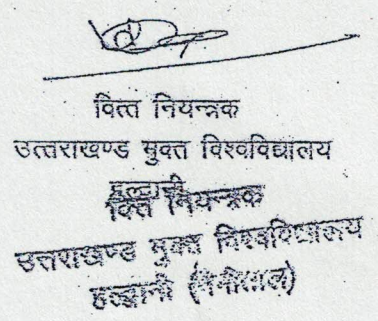 वित्त नियन्त्रक
उत्तराखण्ड मुक्त विश्वविद्यालय
हल्द्वानी
वित्त नियन्त्रक
उत्तराखण्ड मुक्त विश्वविद्यालय
हल्द्वानी (नैनीताल)